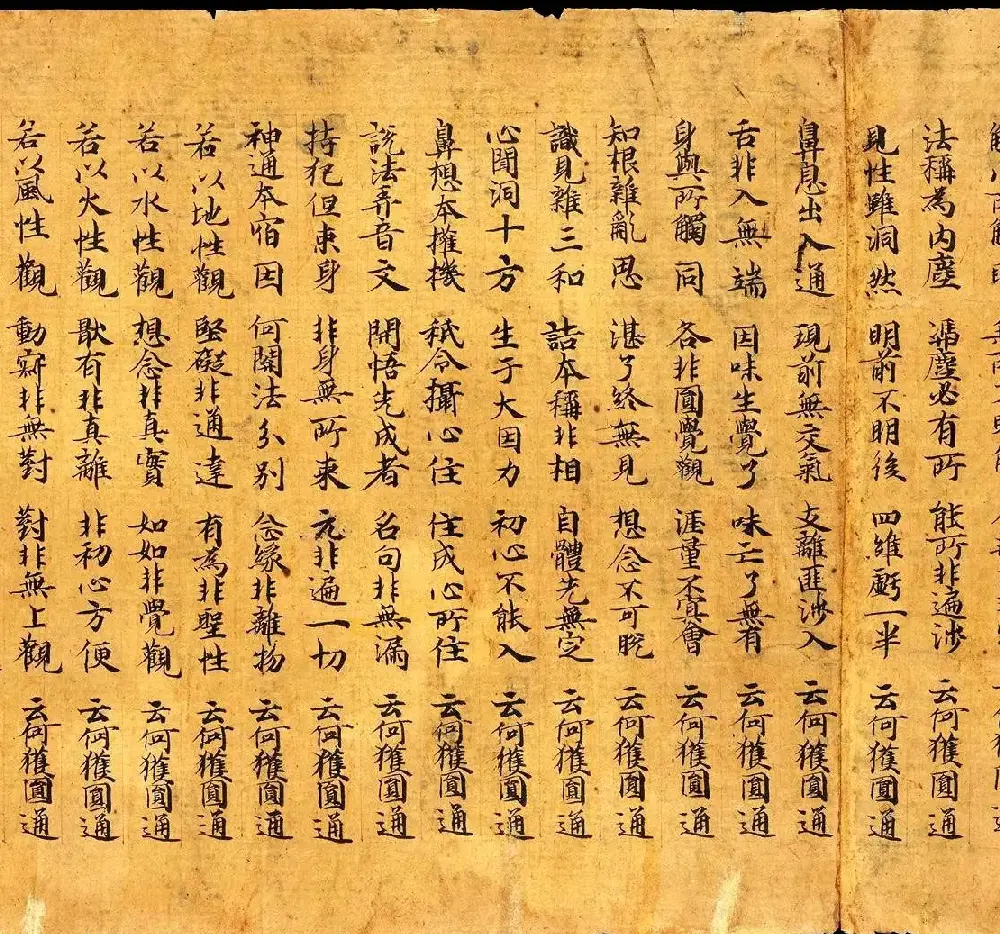 法稱為内塵 馮塵必有所 能所非遍涉 云何獲圓通
見性雖洞然 明前不明後 四維虧一半 云何獲圓通
鼻息出入通 現前無交氣 支離匪涉入 云何獲圓通
舌非入無端 因味生覺了 味亡了無有 云何獲圓通
身與所觸同 各非圓覺觀 涯量不冥會 云何獲圓通
知根雜亂思 湛了終無見 想念不可脫 云何獲圓通
識見雜三和 詰本稱非相 自體先無定 云何獲圓通
心聞洞十方 生于大因力 初心不能入 云何獲圓通
鼻想本權機 秖令攝心住 住成心所住 云何獲圓通
說法弄音文 開悟先成者 名句非無漏 云何獲圓通
持犯但束身 非身無所束 元非遍一切 云何獲圓通
神通本宿因 何關法分別 念緣非離物 云何獲圓通
若以地性觀 堅礙非通達 有為非聖性 云何獲圓通
若以水性觀 想念非真實 如如非覺觀 云何獲圓通
若以火性觀 猒有非真離 非初心方便 云何獲圓通
若以風性觀 動寂非無對 對非無上觀 云何獲圓通